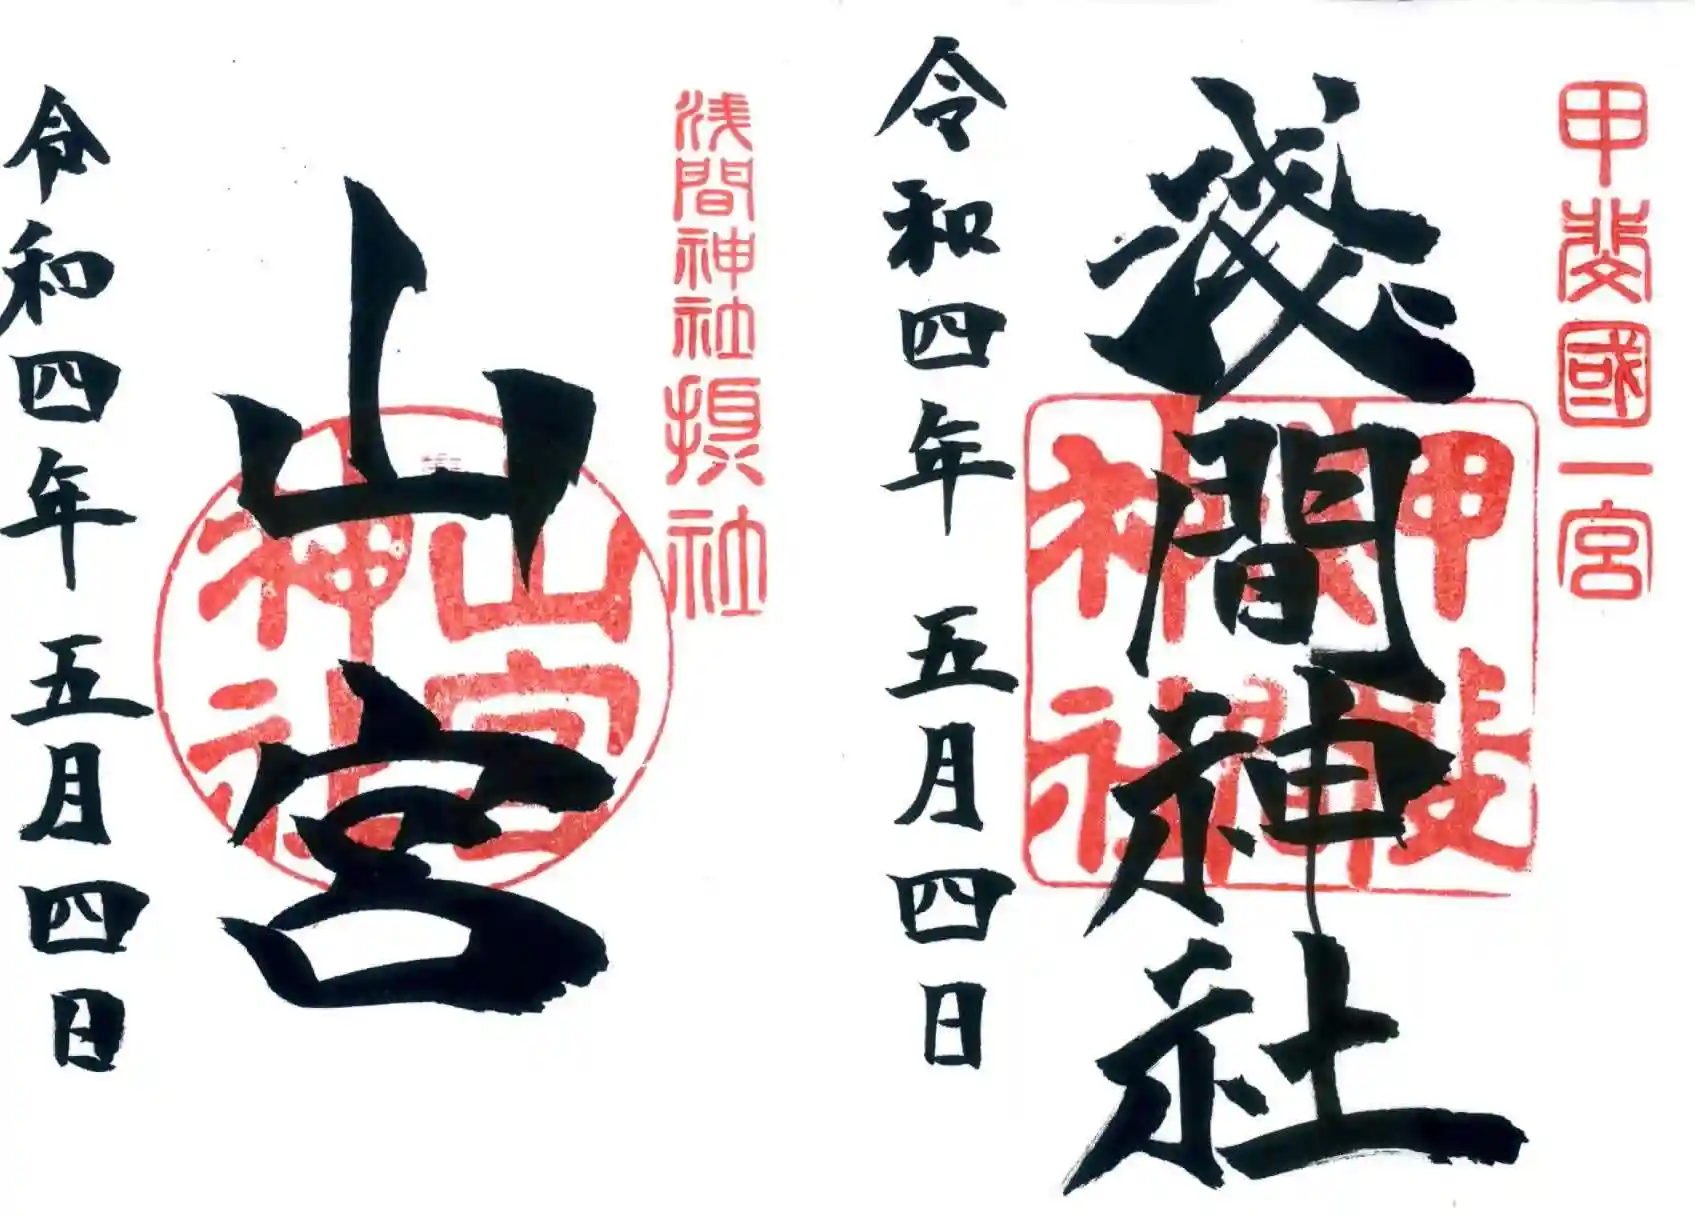 甲斐國一宮
淺間神社
甲斐
淺間
神社
令和四年 五月四日
浅間神社摂社
山宮
山宮
神社
令和四年 五月四日